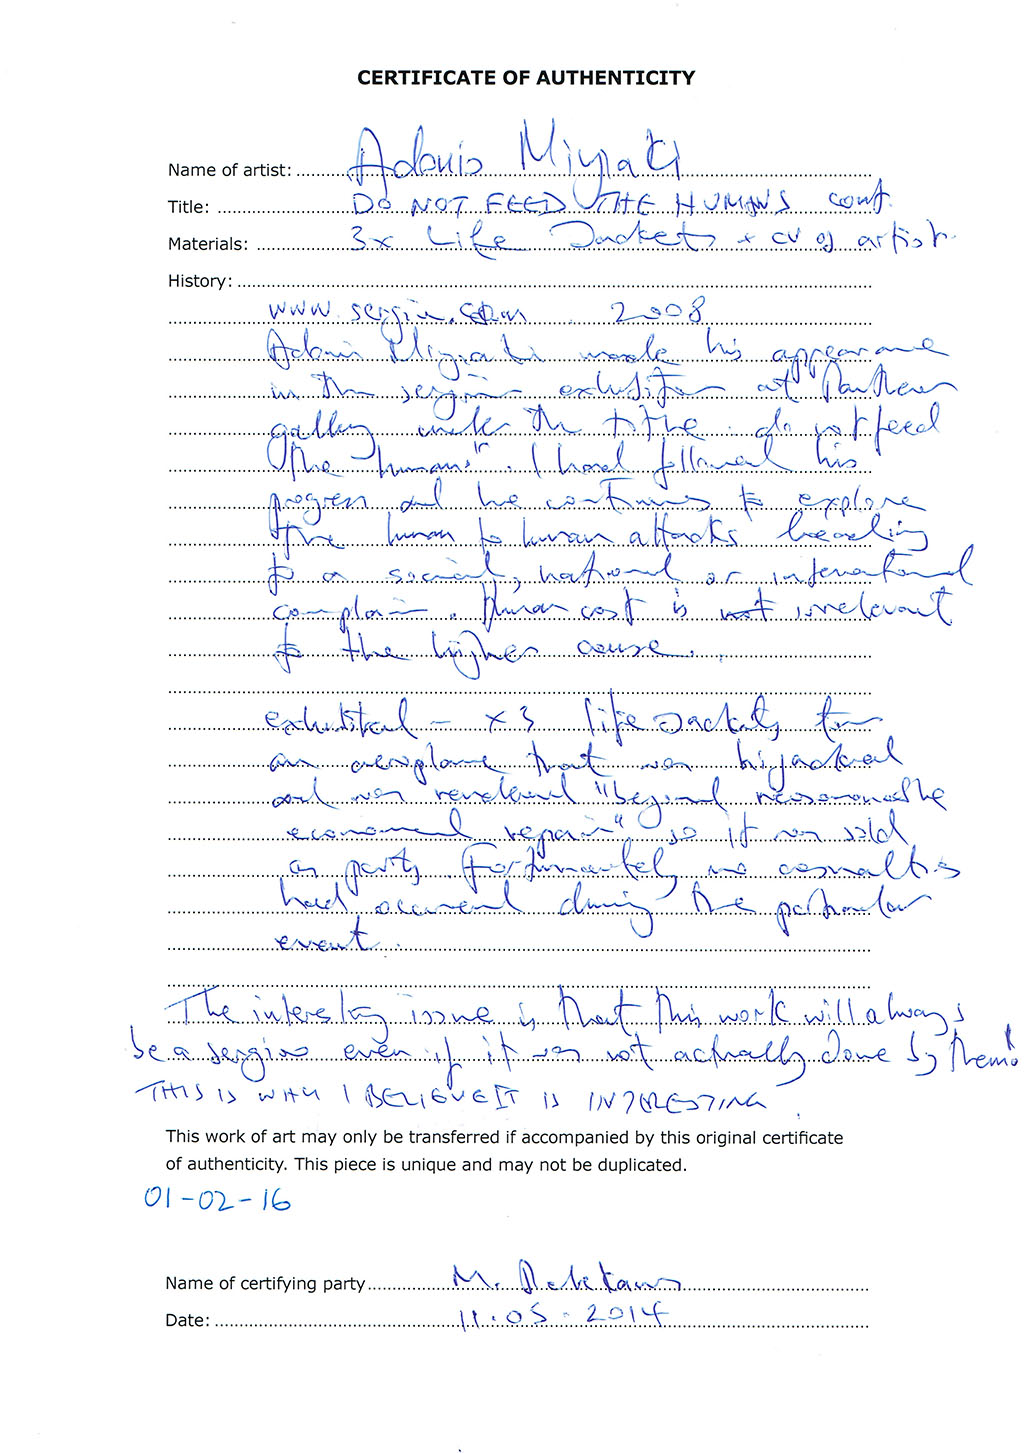 CERTIFICATE OF AUTHENTICITY
Name of artist: Adonis
Title: DO NOT FEED THE HUMANS cont.
Materials: 3x Life Jackets + CV of artist.
History:
www. 2008
Adonis made his appearance
in the exhibition at
gallery under the title . do not feed
the humans". I had followed his
progress and he continues to explore
the human to human attacks
to a social, national or international
. Human cost is not irrelevant
to the higher cause.
- x3 life Jackets from
an aeroplane that was hijacked
and was rendered "beyond reasonable
economical repair" so it was sold
as parts. Fortunately no casualties
had occurred during the particular
event.
The interesting issue is that this work will always
be a even if it was not actually done by them
THIS IS WHY I BELIEVE IT IS INTERESTING.
This work of art may only be transferred if accompanied by this original certificate
of authenticity. This piece is unique and may not be duplicated.
01-02-16
Name of certifying party M.
Date: 11.05.2014